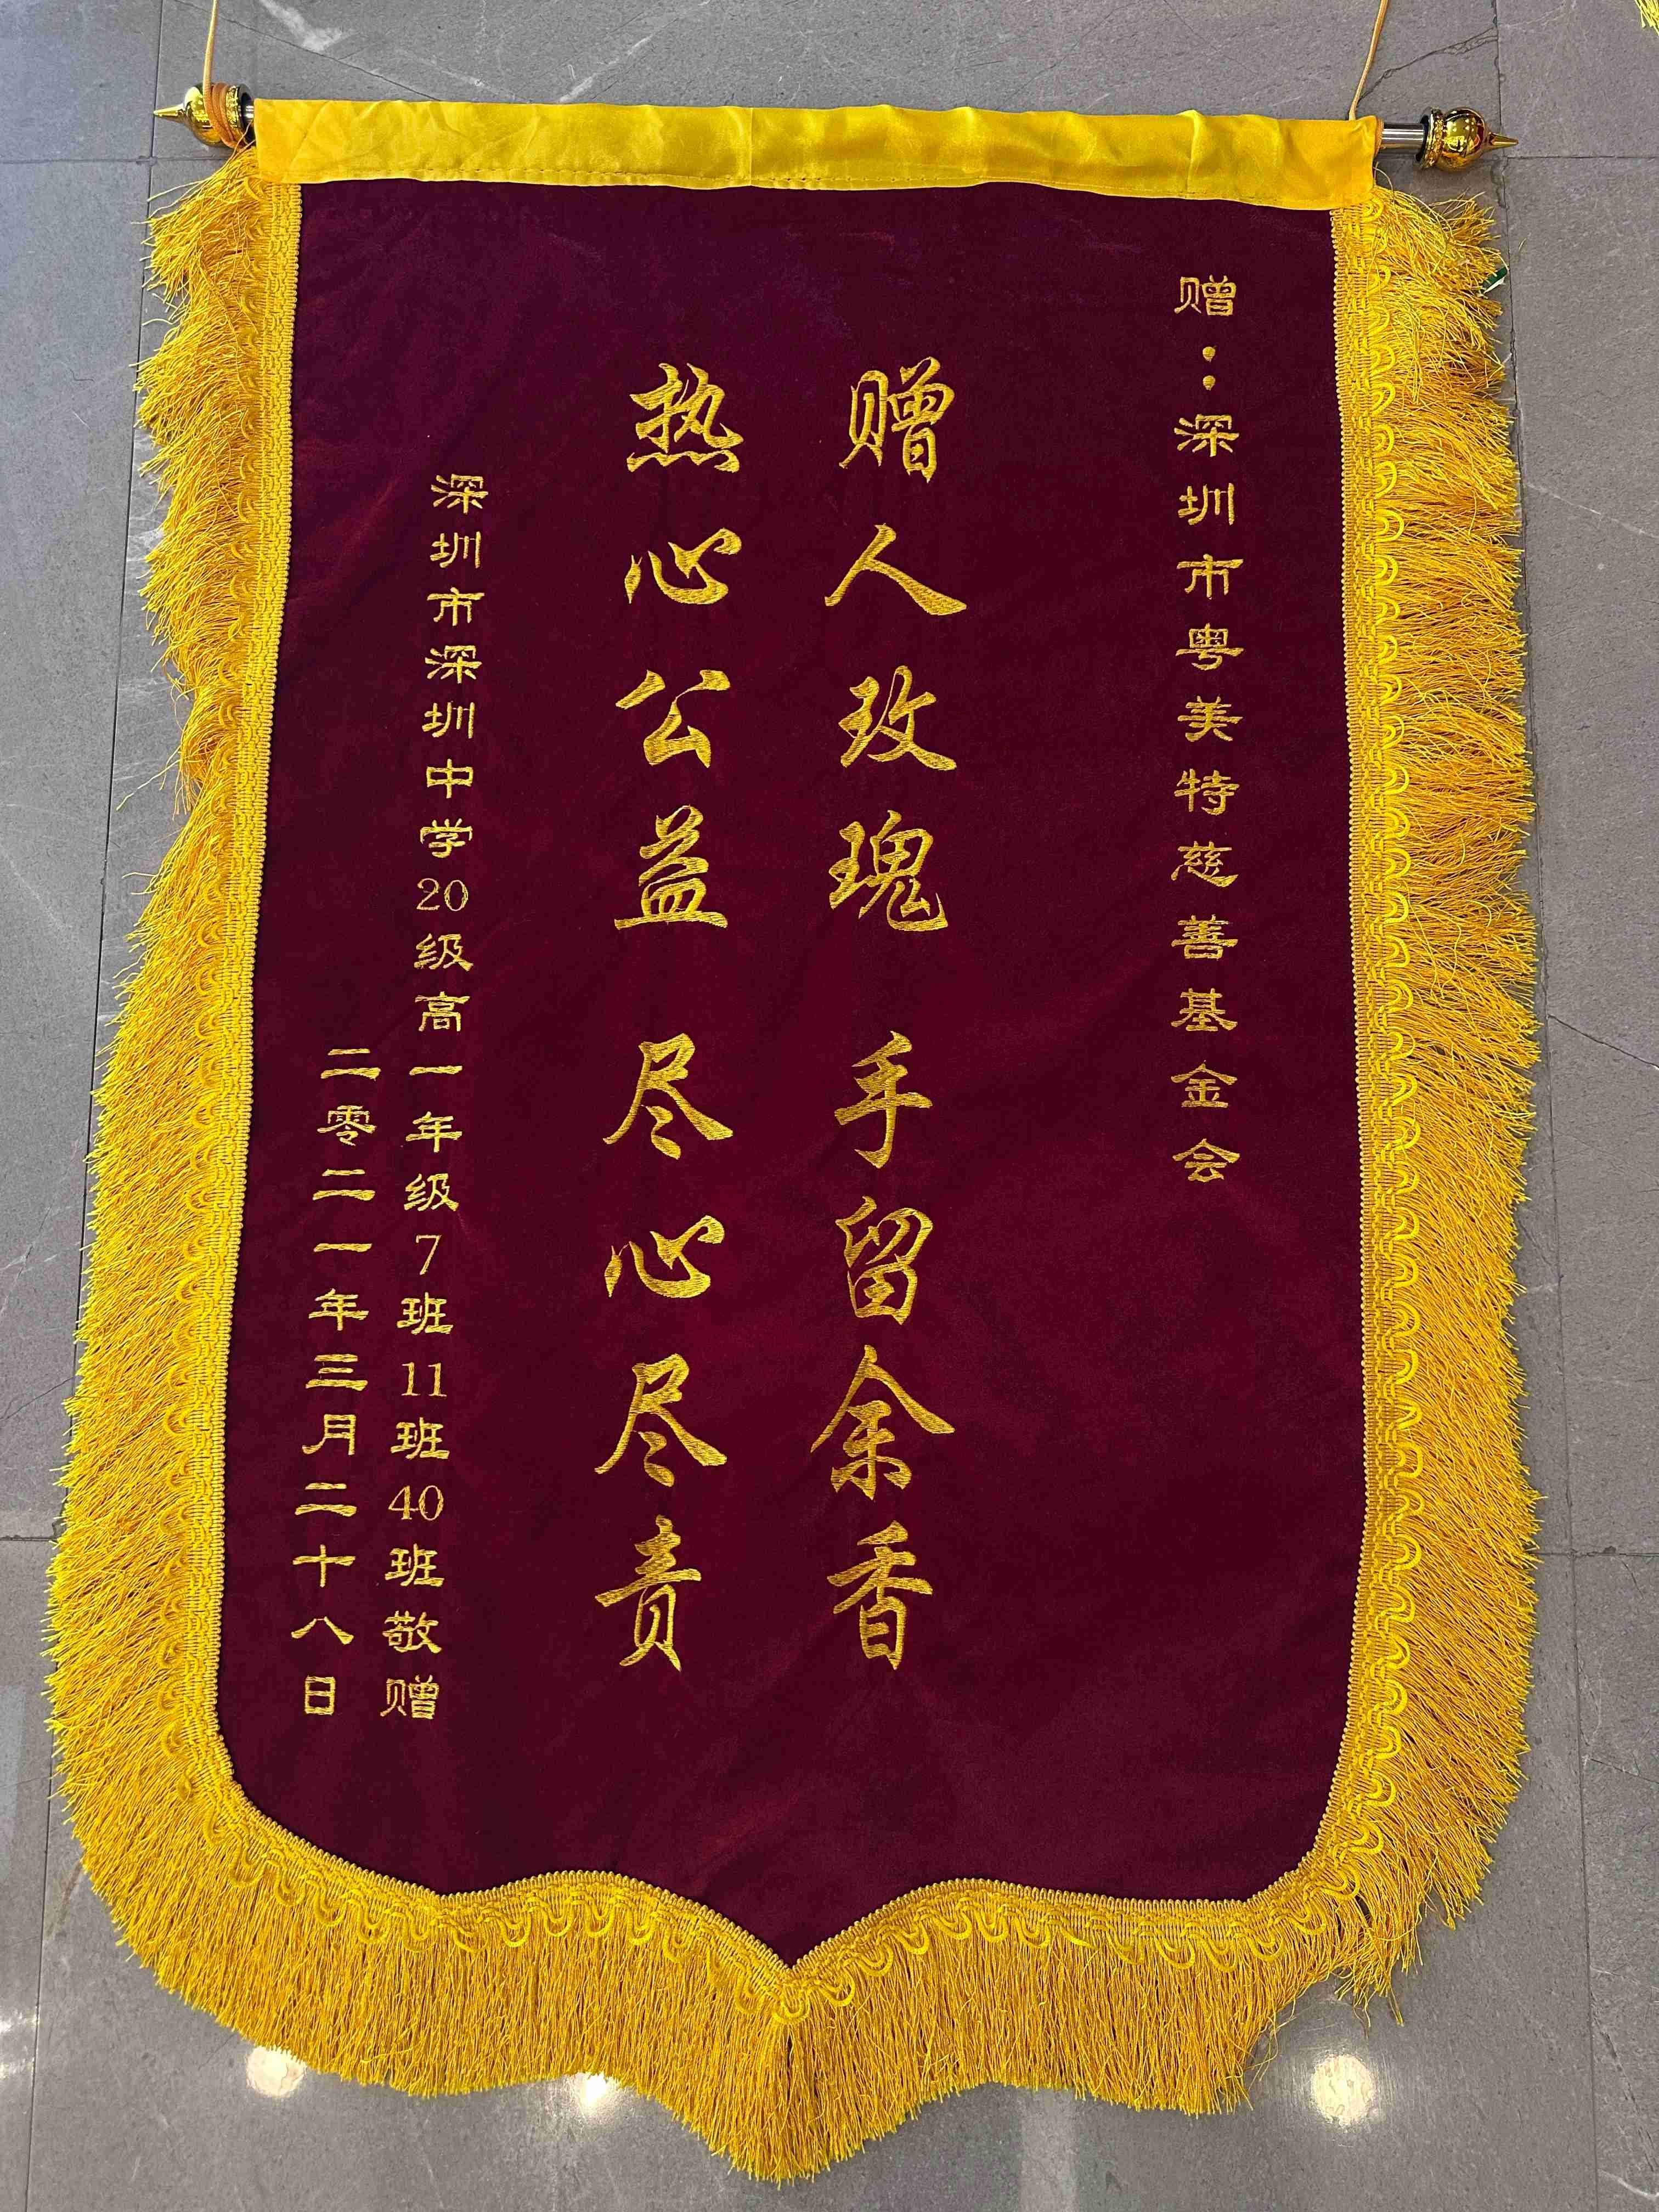 赠：深圳市粤美特慈善基金会
赠人玫瑰 手留余香
热心公益 尽心尽责
深圳市深圳中学20级高一年级7班11班40班敬赠
二零二一年三月二十八日